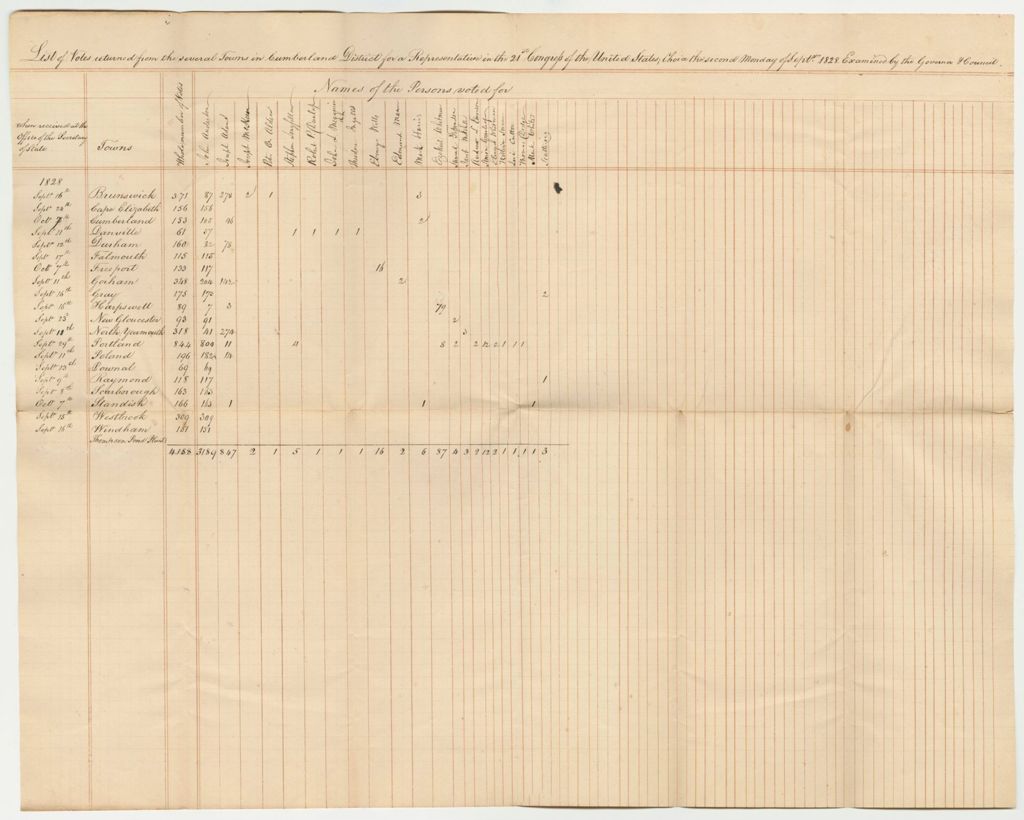 List of Votes returned from the several Towns in Cumberland District for a Representative in the 21st Congress of the United States, the second Monday of Septr 1828. Examined by the Governor & Council.
Names of the Persons voted for
when received at the Office of the Secretary of State
Towns
Whole number of Votes
John Anderson
Joseph
Joseph
Stephen Longfellow
Robert
Reuben
Edmund
Mark Harris
Ezekiel Whitman
Scattering
1828
Sept 16th Brunswick 371 87 278 2 1 3
Sept 24th Cape Elizabeth 156 156
Oct 7th Cumberland 153 105 46 2
Sept 11th Danville 61 57 1 1 1 1
Sept 12th Durham 160 82 78
Sept 17th Falmouth 115 115
Oct 7th Freeport 133 117 16
Sept 11th Gorham 348 204 142 2
Sept 16th Gray 175 173 2
Sept 16th Harpswell 89 7 3 79
Sept 23 New Gloucester 93 91 2
Sept 18th North Yarmouth 318 41 274 3
Sept 29th Portland 844 800 11 4 8 2 2 12 2 1 1 1
Sept 11th Poland 196 182 14
Sept 13th Pownal 69 69
Sept 9th Raymond 118 117 1
Sept 8th Scarborough 163 163
Oct 7th Standish 166 163 1 1 1
Sept 15th Westbrook 309 309
Sept 16th Windham 151 151
Thompson Pond
4188 3189 847 2 1 5 1 1 1 16 2 6 87 4 3 2 12 2 1 1 1 1 3